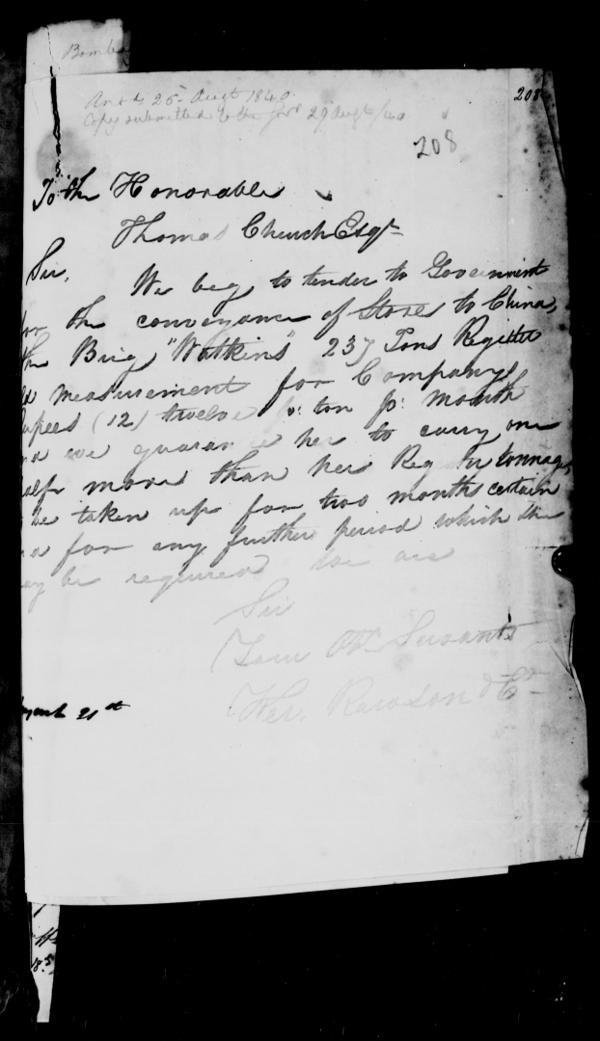 Bombay
208
Ansd 25th Augt 1840
Copy submitted to the Govr 29 Augt /40
208
To the Honorable
Thomas Church Esqr
Sir,
We beg to tender to Government
for the conveyance of Stores to China,
the Brig "Watkins" 237 Tons Register
old measurement for Company's
rupees (12) twelve pr ton pr month
and we guarantee her to carry one
half more than her Register tonnage,
be taken up for two months certain
and for any further period which she
may be required we are
Sir
Your Obt Servants
Rawson & Co
August 21st